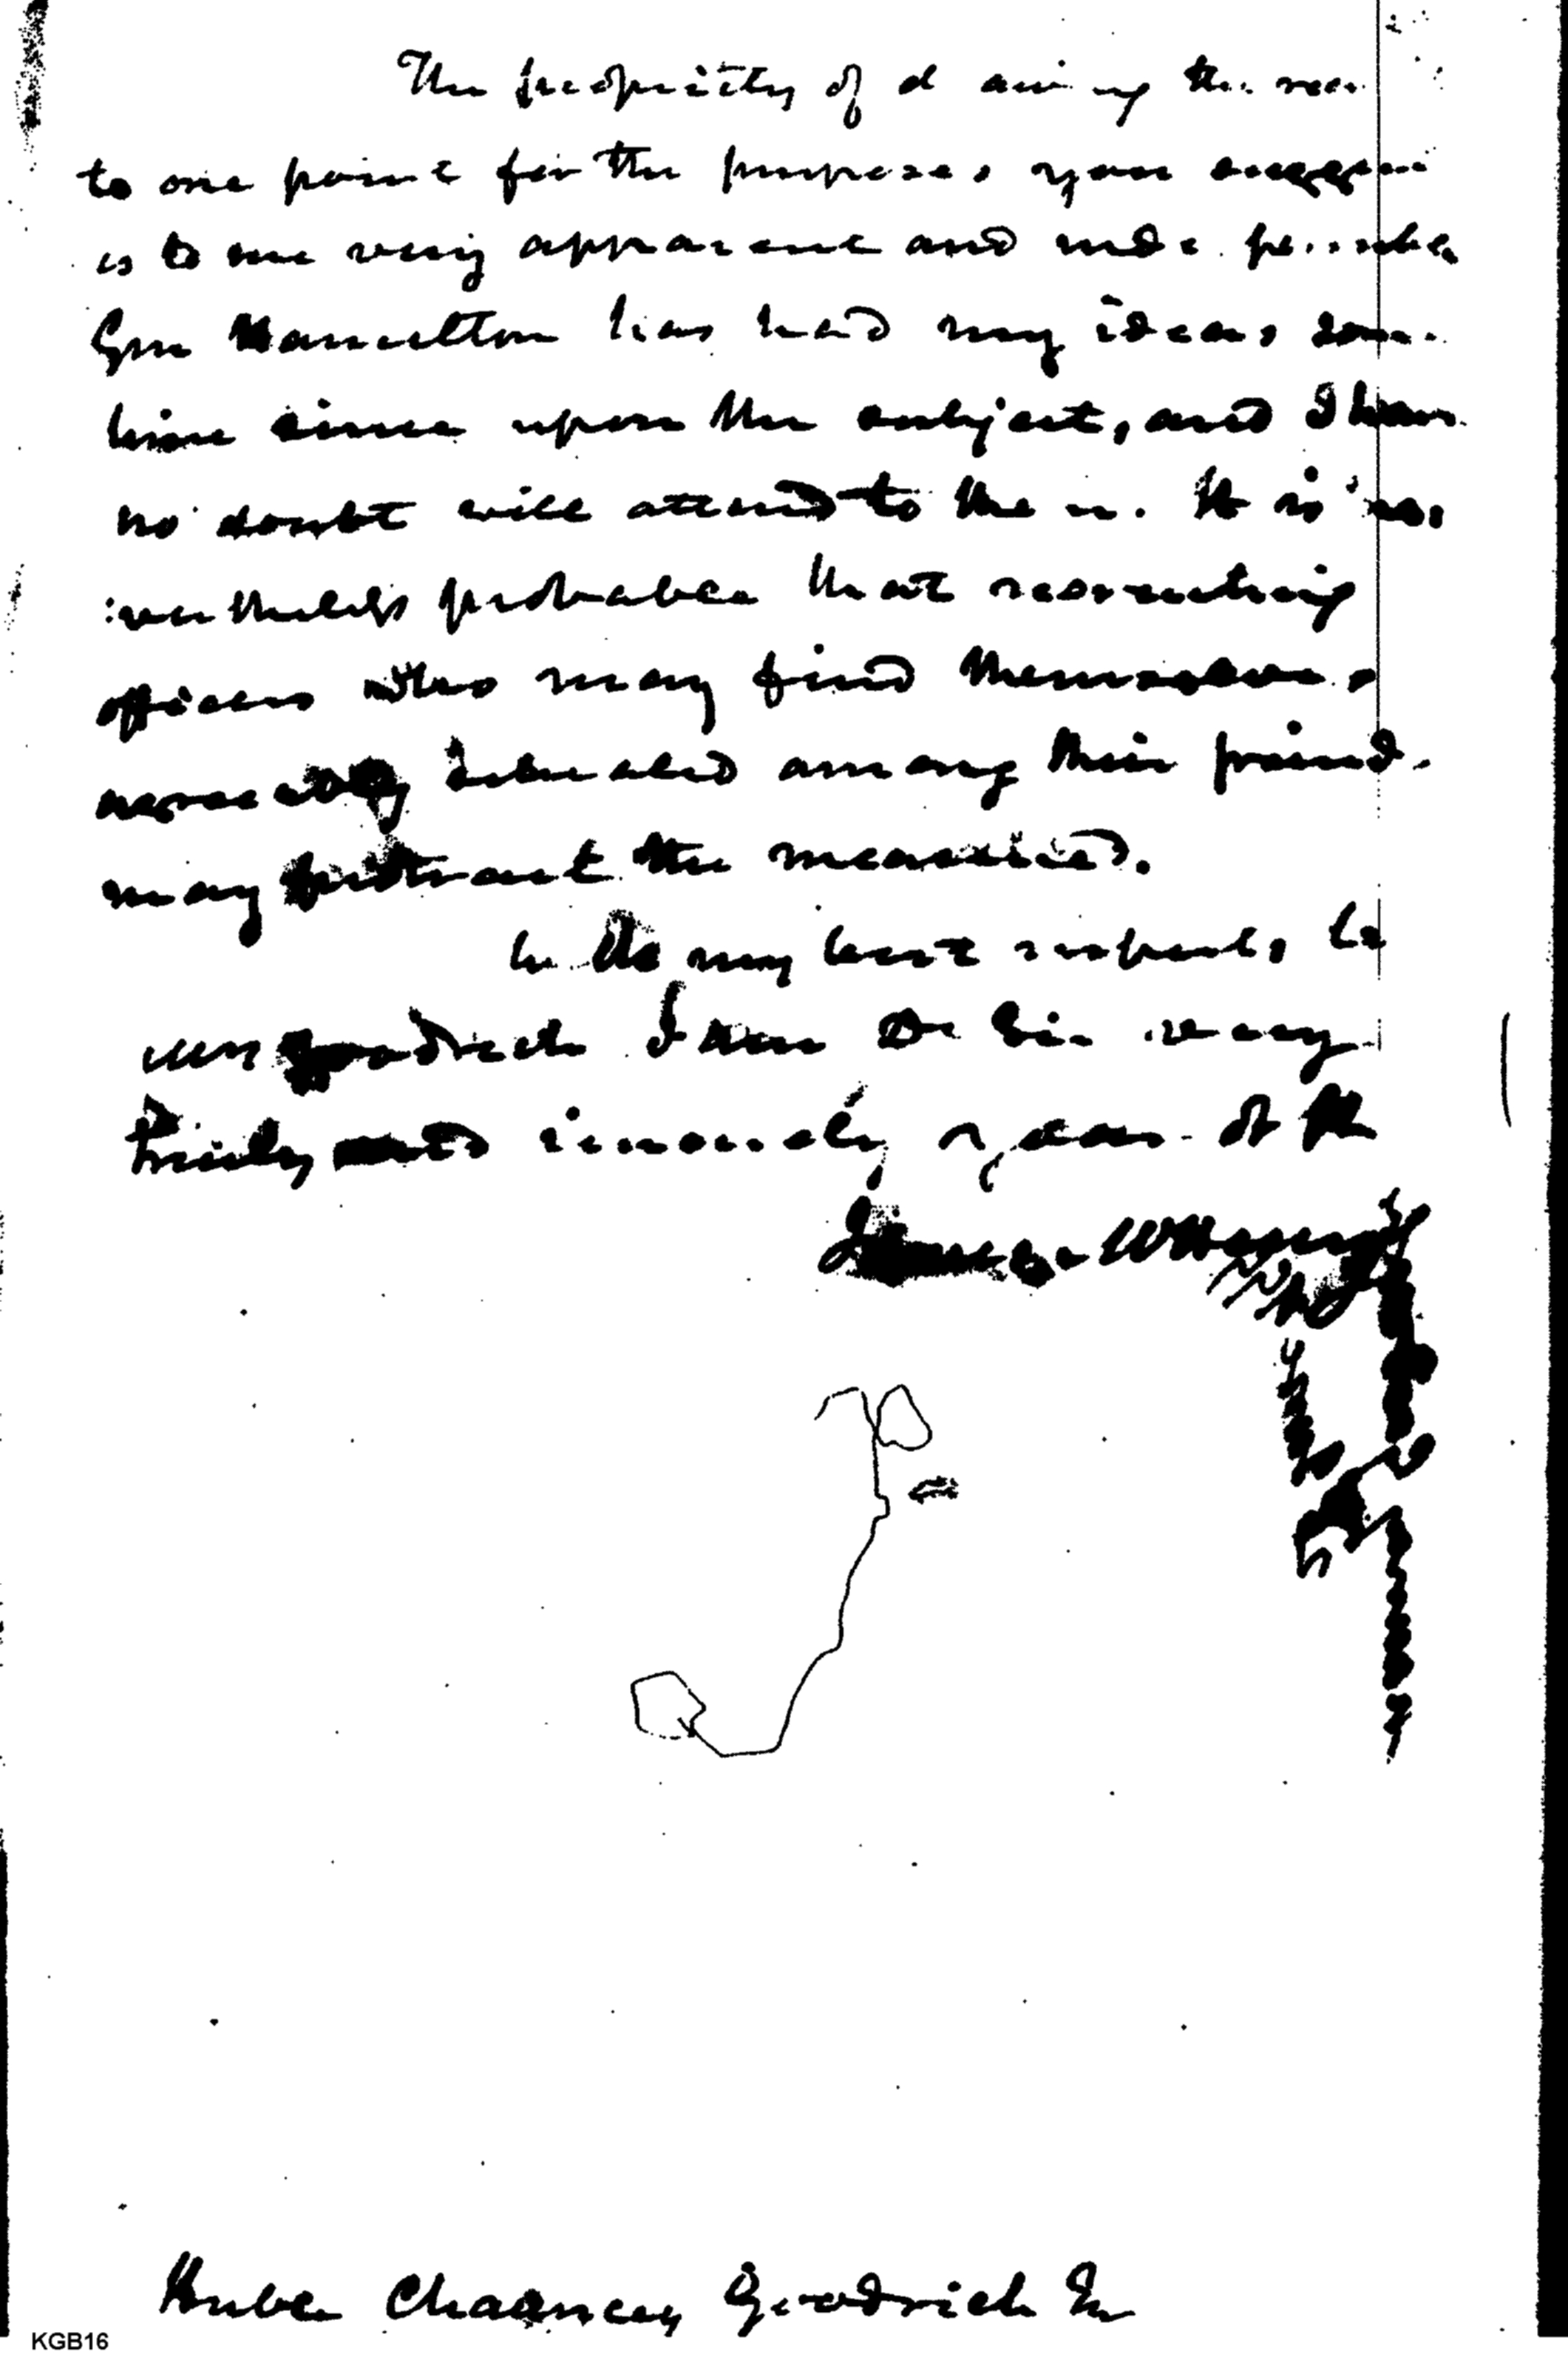 The propriety of d aw ing the
to one point for the purposes you sugges
is to me very apparent and inde pe
Gen Hamilton has had my ideas some
time since upon the subject, and I have
no doubt will attend to the m. It is
vertheless probable that recruiting
officers who may find themselves
situated among their friend
may protract the measure.
With my best respects to
Goodrich I am Dr Sir very
truly and sincerely yours
Honble Chauncey Goodrich
KGB16